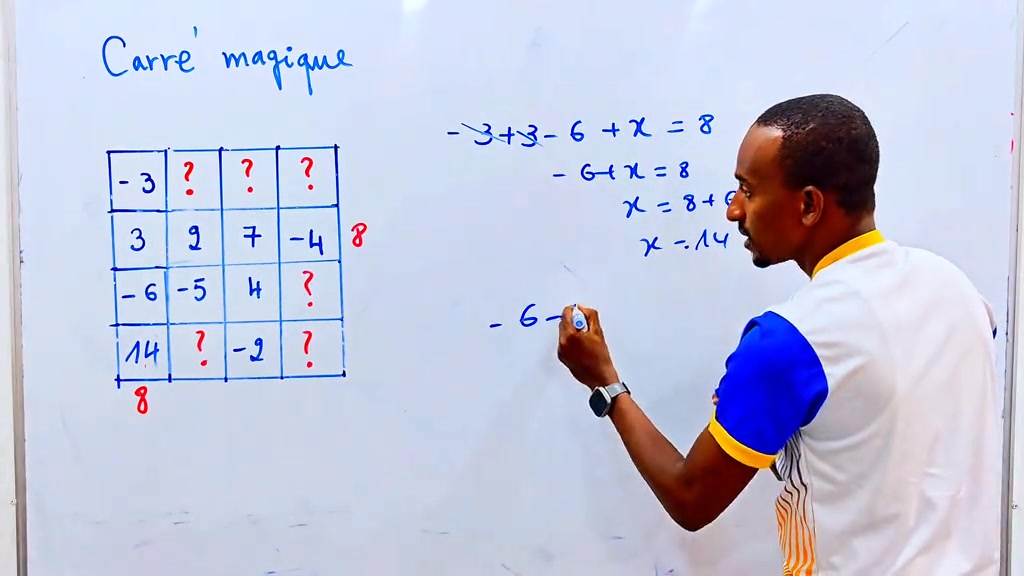 Carré magique
-3 ? ? ?
3 2 7 -4 8
-6 -5 4 ?
14 ? -2 ?
8
-3+3-6+x=8
-6+x=8
x=8+
x=14
-6-